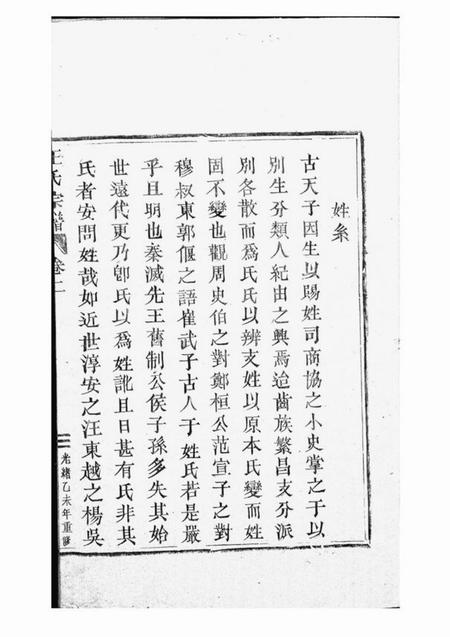 姓系
古天子因生以賜姓司商協之小史掌之于以
別生分類人紀由之興焉迨齒族繁昌支分派
別各散而爲氏氏以辨支姓以原本氏變而姓
固不變也觀周史伯之對鄭桓公范宣子之對
穆叔東郭偃之語崔武子古人于姓氏若是嚴
乎且明也秦滅先王舊制公侯子孫多失其始
世遠代更乃卽氏以爲姓訛且日甚有氏非其
氏者安問姓哉如近世淳安之汪東越之楊吳
王氏宗譜 卷二
光緒乙未年重修